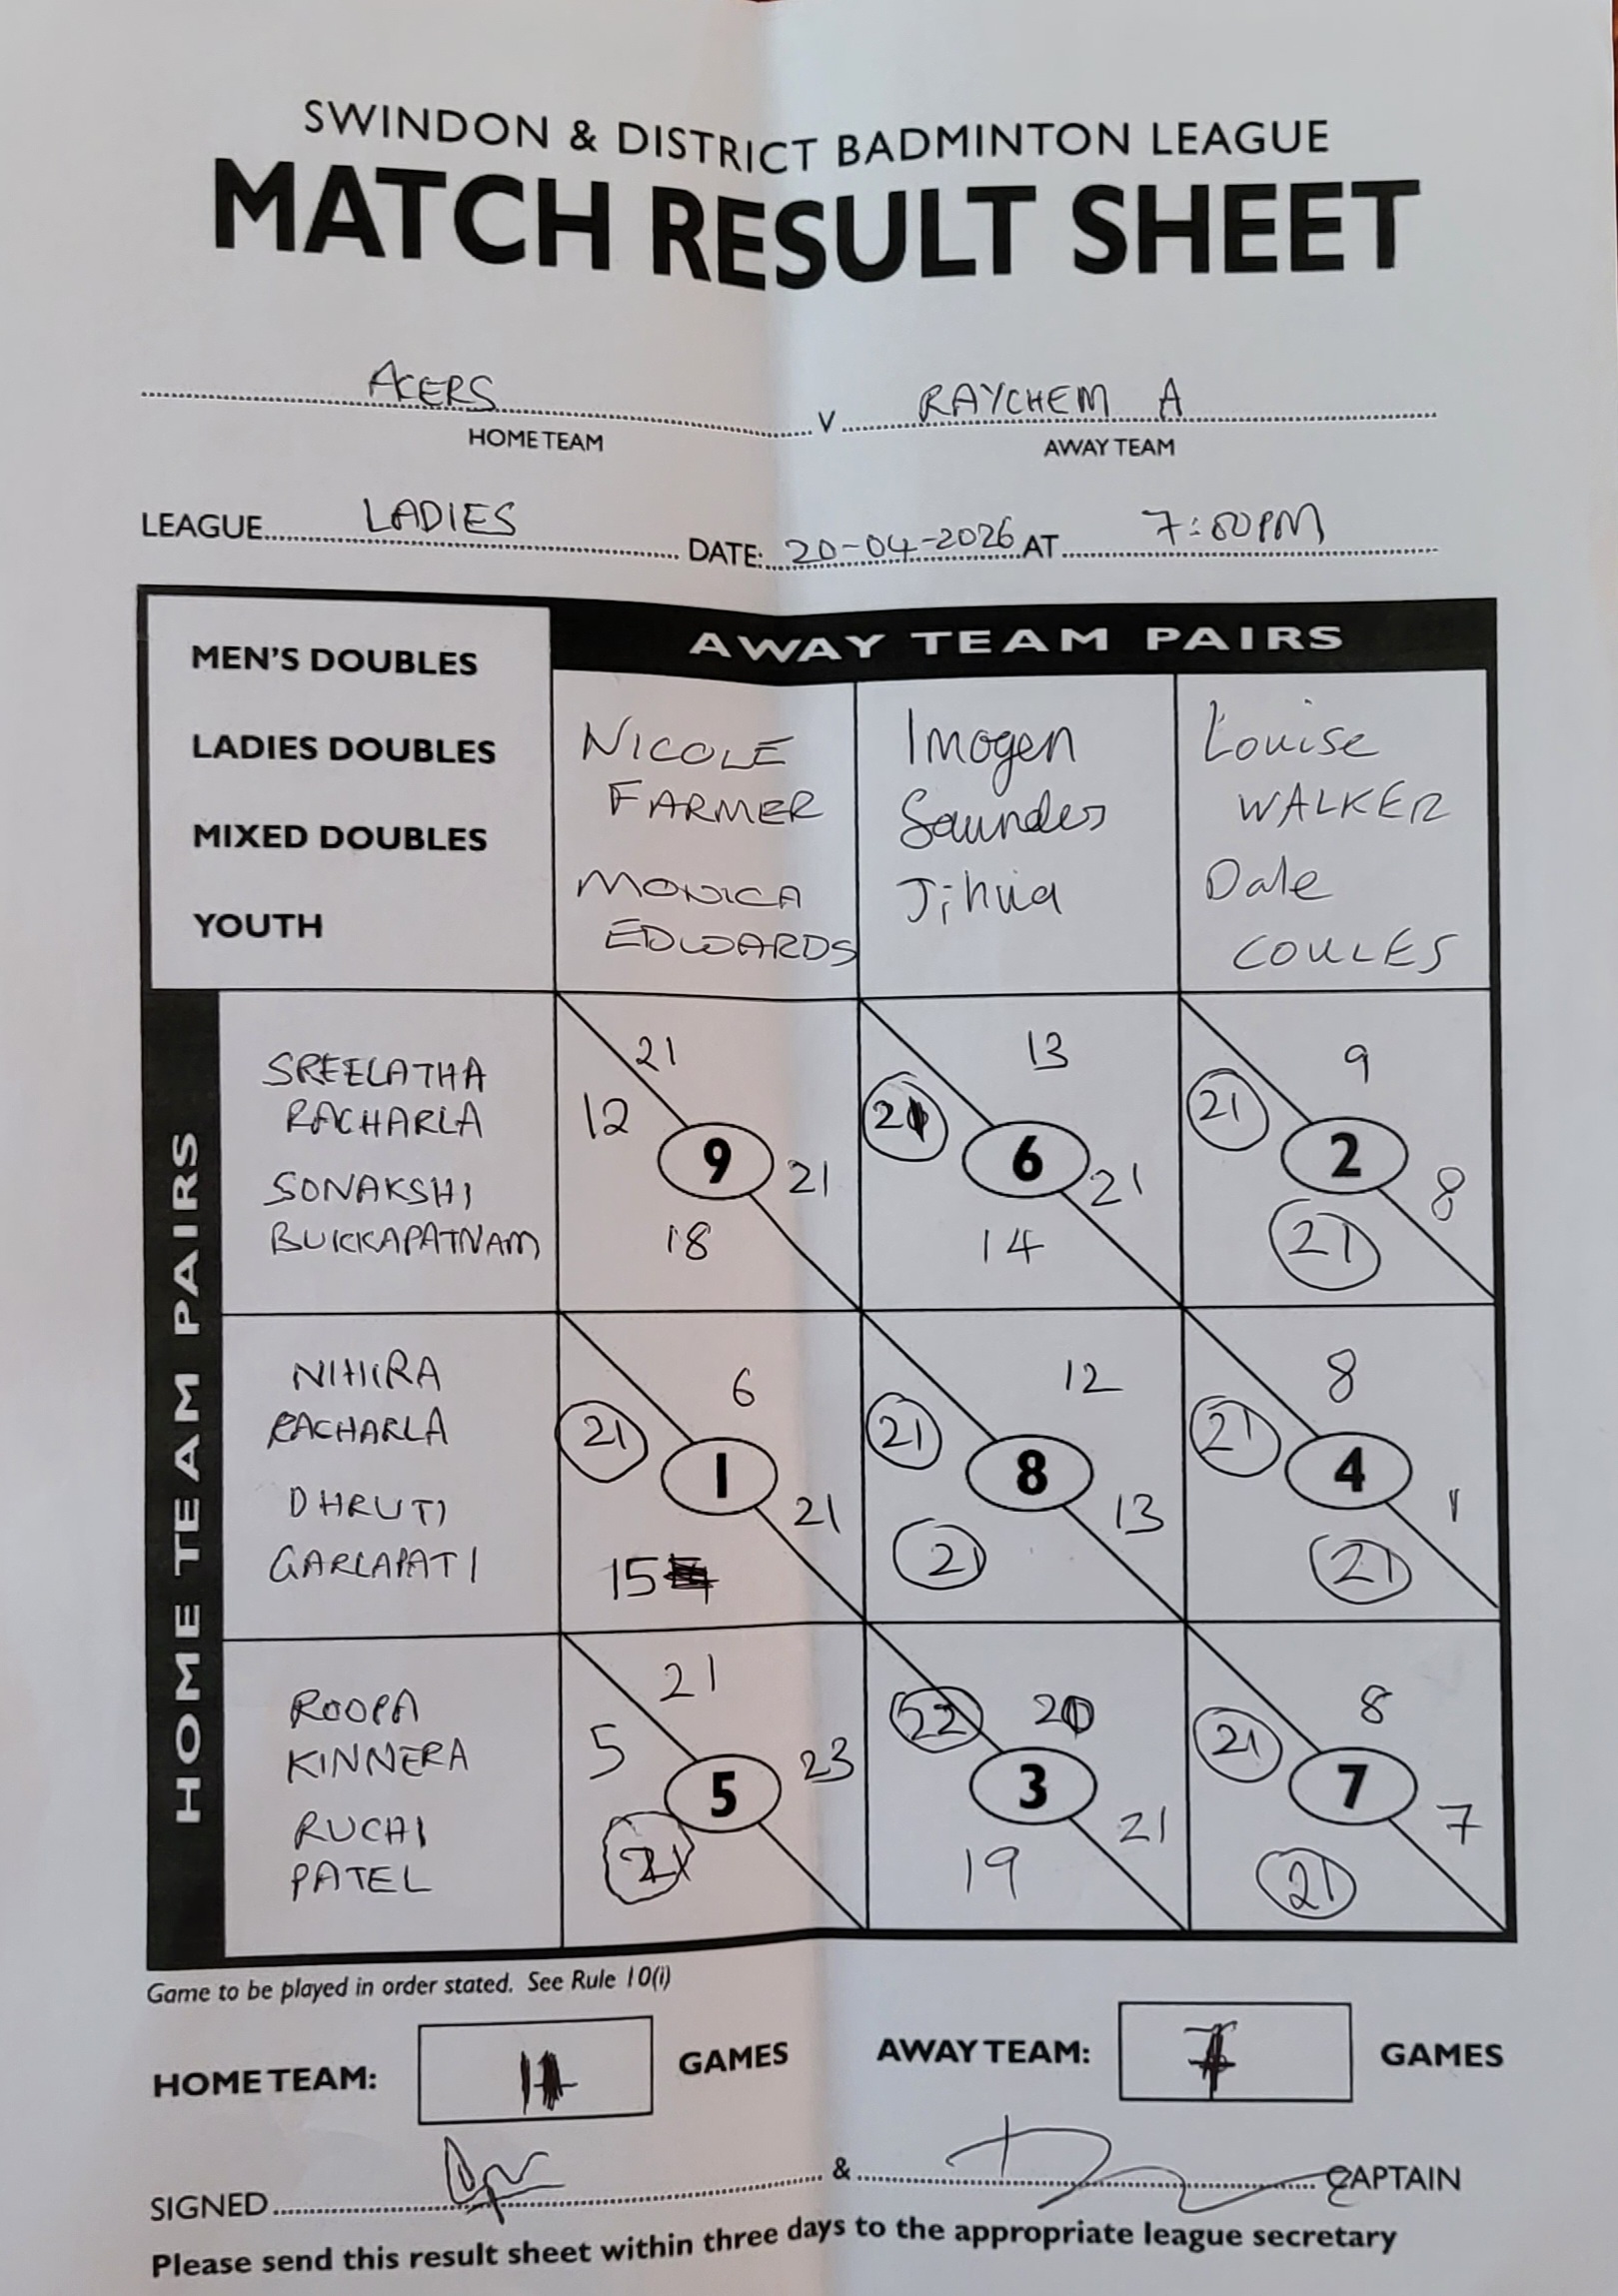 SWINDON & DISTRICT BADMINTON LEAGUE
MATCH RESULT SHEET
ACERS V RAYCHEM A
HOME TEAM AWAY TEAM
LEAGUE LADIES DATE: 20-04-2026 AT 7:00PM
MEN'S DOUBLES
LADIES DOUBLES
MIXED DOUBLES
YOUTH
AWAY TEAM PAIRS
NICOLE
FARMER
MONICA
EDWARDS
Imogen
Saunders
Jihua
Louise
WALKER
Dale
COULES
HOME TEAM PAIRS
SREELATHA
RACHARLA
SONAKSHI
BUKKAPATNAM
21
12
9
21
18
13
21
6
21
14
9
21
2
8
21
NIHIRA
RACHARLA
DHRUTI
GARLAPATI
6
21
1
21
15
12
21
8
13
21
8
21
4
1
21
ROOPA
KINNERA
RUCHI
PATEL
21
5
5
23
21
22 20
3
21
19
8
21
7
7
21
Game to be played in order stated. See Rule 10(i)
HOME TEAM: 11 GAMES AWAY TEAM: 7 GAMES
SIGNED & CAPTAIN
Please send this result sheet within three days to the appropriate league secretary